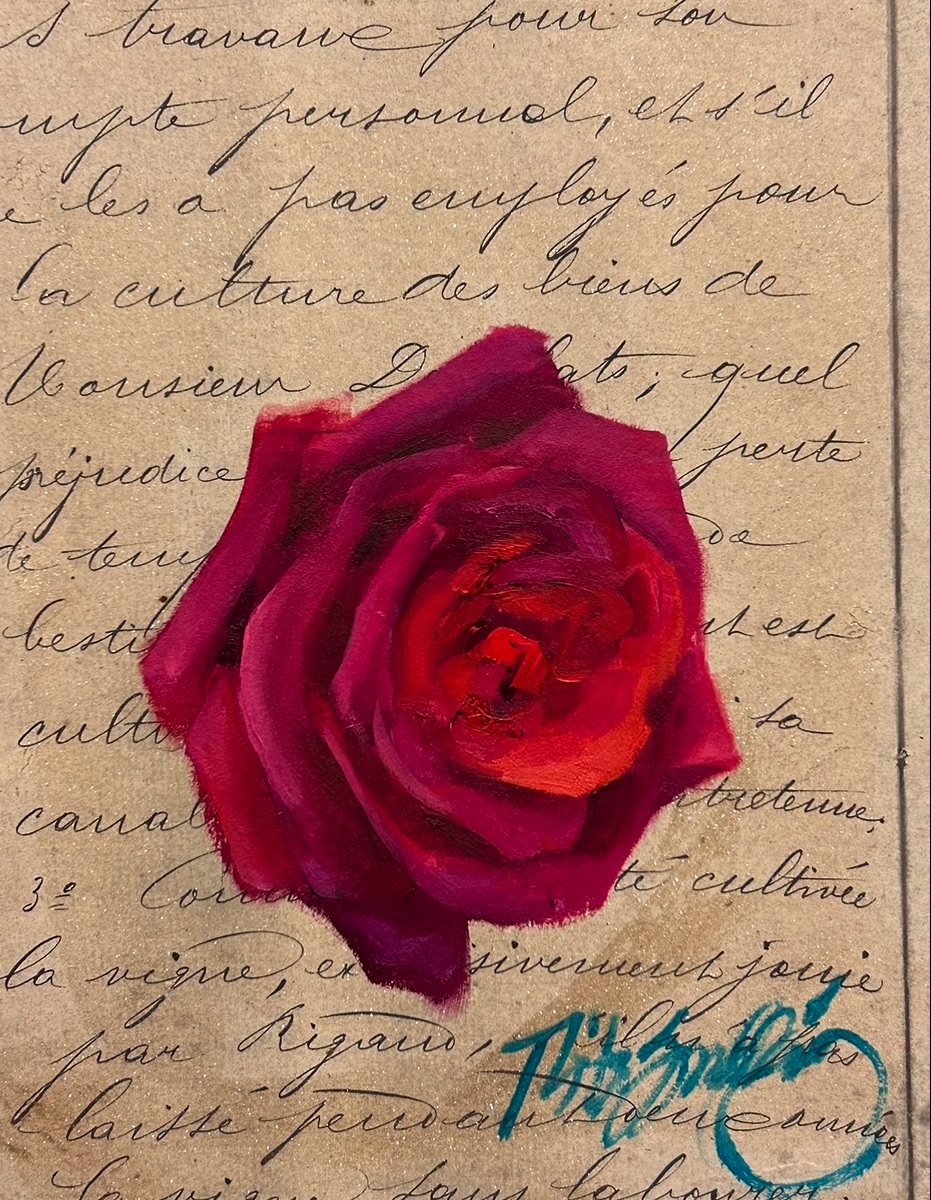 s travauxe pour son
mpte personnel, et s'il
e les a pas employés pour
la culture des biens de
Monsieur D ats ; quel
préjudice perte
de temp da
besti t est
cultu sa
canal tretenue.
3º Com té cultivée
la vigne, ex sivement jouie
par Rigaud, s'il n'a pas
laissé pendant deux années
la vigne sans labourer